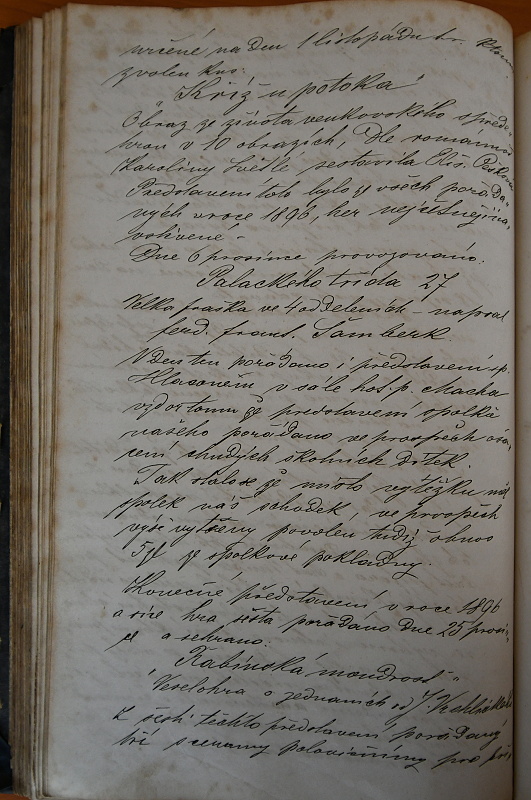 určené na den 1 listopádu t.r.
zvolen kus:
"Kříž u potoka"
Obraz ze života venkovského s přede-
hrou v 10 obrazích, Dle románu
Karoliny Světlé sestavila Eliš. Pešková
Představení toto bylo ze všech pořáda-
ných v roce 1896, her nejčetněji na-
vštívené.
Dne 6 prosince provozováno:
Palackého třída 27
Velká fraška ve 4 odděleních - napsal
ferd. frant. Šamberk.
V den ten pořádáno i představení sp.
Hlasonem v sále host. p. Macha
vzdor tomu že představení spolku
našeho pořádáno ve prospěch
cení chudých školních dítek.
Tak stalo se že místo výtěžku měl
spolek náš schodek, ve prospěch
výše vytčený povolen tudíž obnos
5 zl ze spolkové pokladny.
Konečné představení v roce 1896
a sice hra šestá pořádáno dne 25 prosin-
ce a sehráno:
"Rabínská moudrost"
Veselohra o jednáních od J. Vrchlického
Z šesti těchto představení pořádaný
tři s cenamy polovičními pro